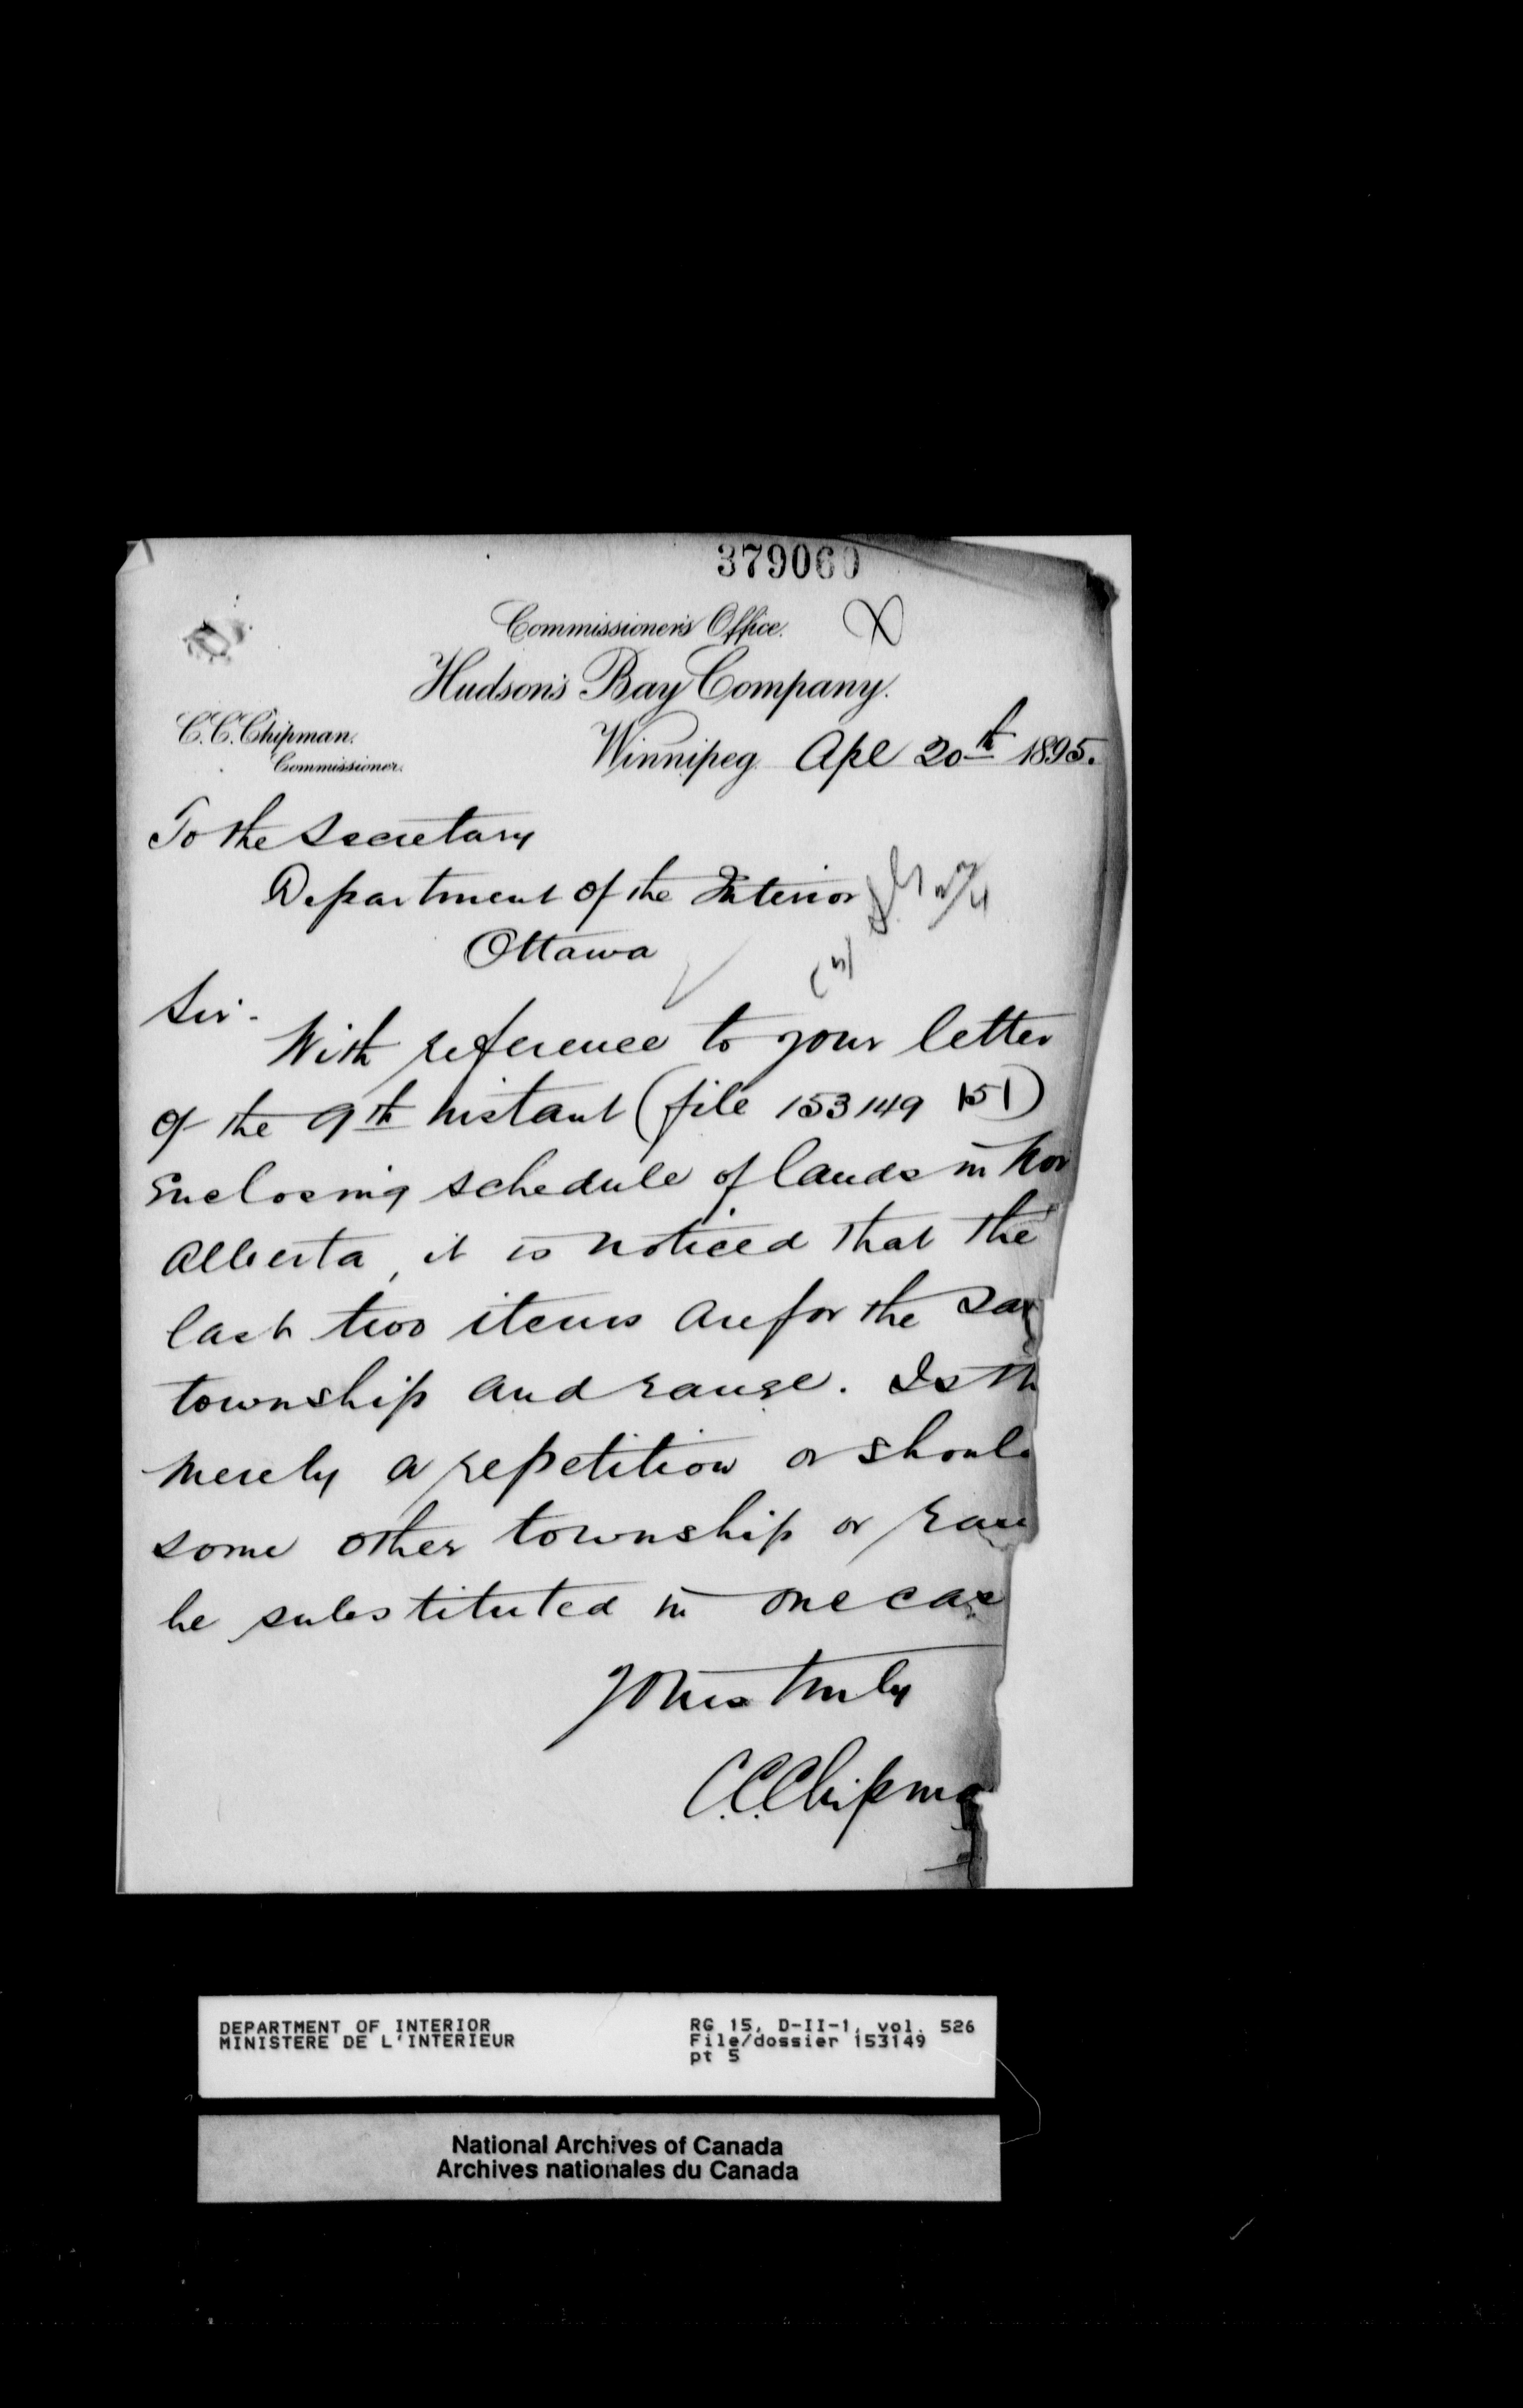 379060
Commissioner's Office.
Hudson's Bay Company.
C. C. Chipman.
Commissioner.
Winnipeg. Apl 20th 1895.
To the Secretary
Department of the Interior
Ottawa
Sir.
With reference to your letter
of the 9th instant (file 153149 151)
Enclosing schedule of lands in Nor
Alberta, it is noticed that the
last two items are for the Sa
township and range. Is th
merely a repetition or should
some other township or ran
be substituted in one cas
Yours truly
C.C. Chipma
DEPARTMENT OF INTERIOR
MINISTERE DE L'INTERIEUR
RG 15, D-II-1, vol. 526
File/dossier 153149
pt 5
National Archives of Canada
Archives nationales du Canada